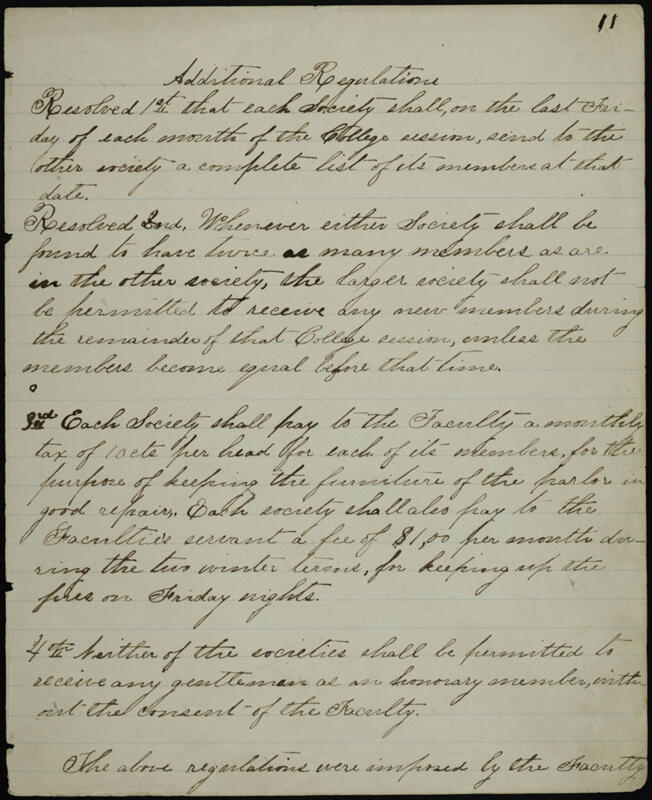 11
Additional Regulations
Resolved 1st that each Society shall, on the last Fri-
day of each month of the College session, send to the
other society a complete list of its members at that
date.
Resolved 2nd. Whenever either Society shall be
found to have twice as many members as are
in the other society, the larger society shall not
be permitted to receive any new members during
the remainder of that College session, unless the
members become equal before that time.
3rd Each Society shall pay to the Faculty a monthly
tax of 10cts per head for each of its members, for the
purpose of keeping the furniture of the parlor in
good repairs. Each society shall also pay to the
Faculties servant a fee of $1,00 per month du-
ring the two winter terms, for keeping up the
fires on Friday nights.
4th Neither of the societies shall be permitted to
receive any gentleman as an honorary member, with-
out the consent of the Faculty.
The above regulations were imposed by the Faculty